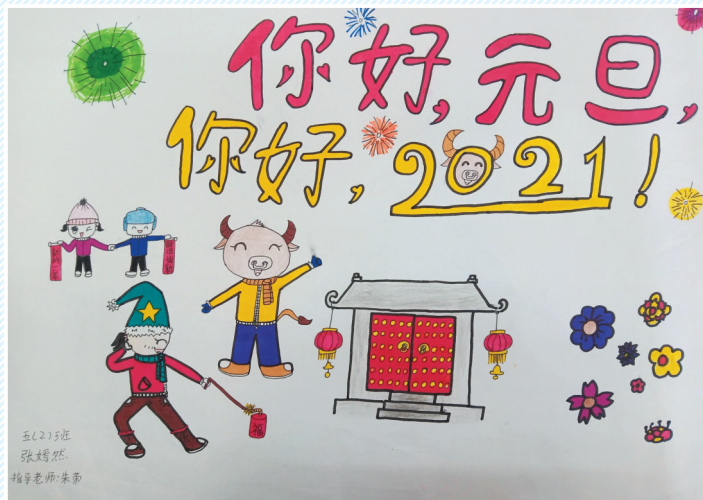 你好，元旦，
你好，2021！
福
五(2)班
张嫣然
指导老师：朱荣